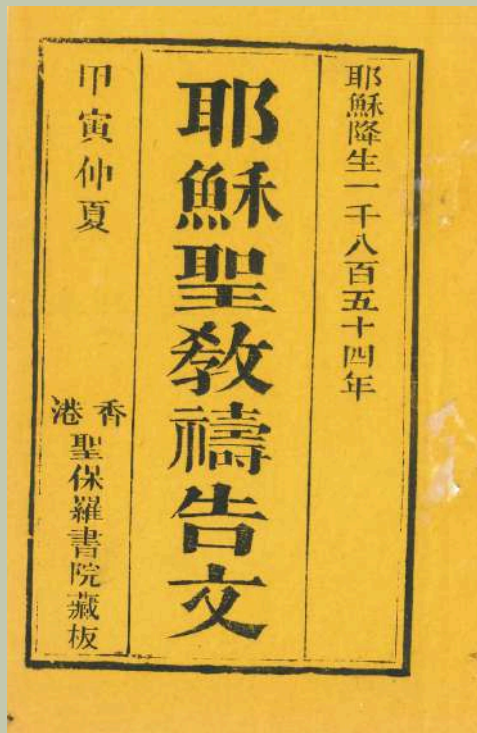 耶穌降生一千八百五十四年
耶穌聖教禱告文
甲寅仲夏
香港
聖保羅書院藏板